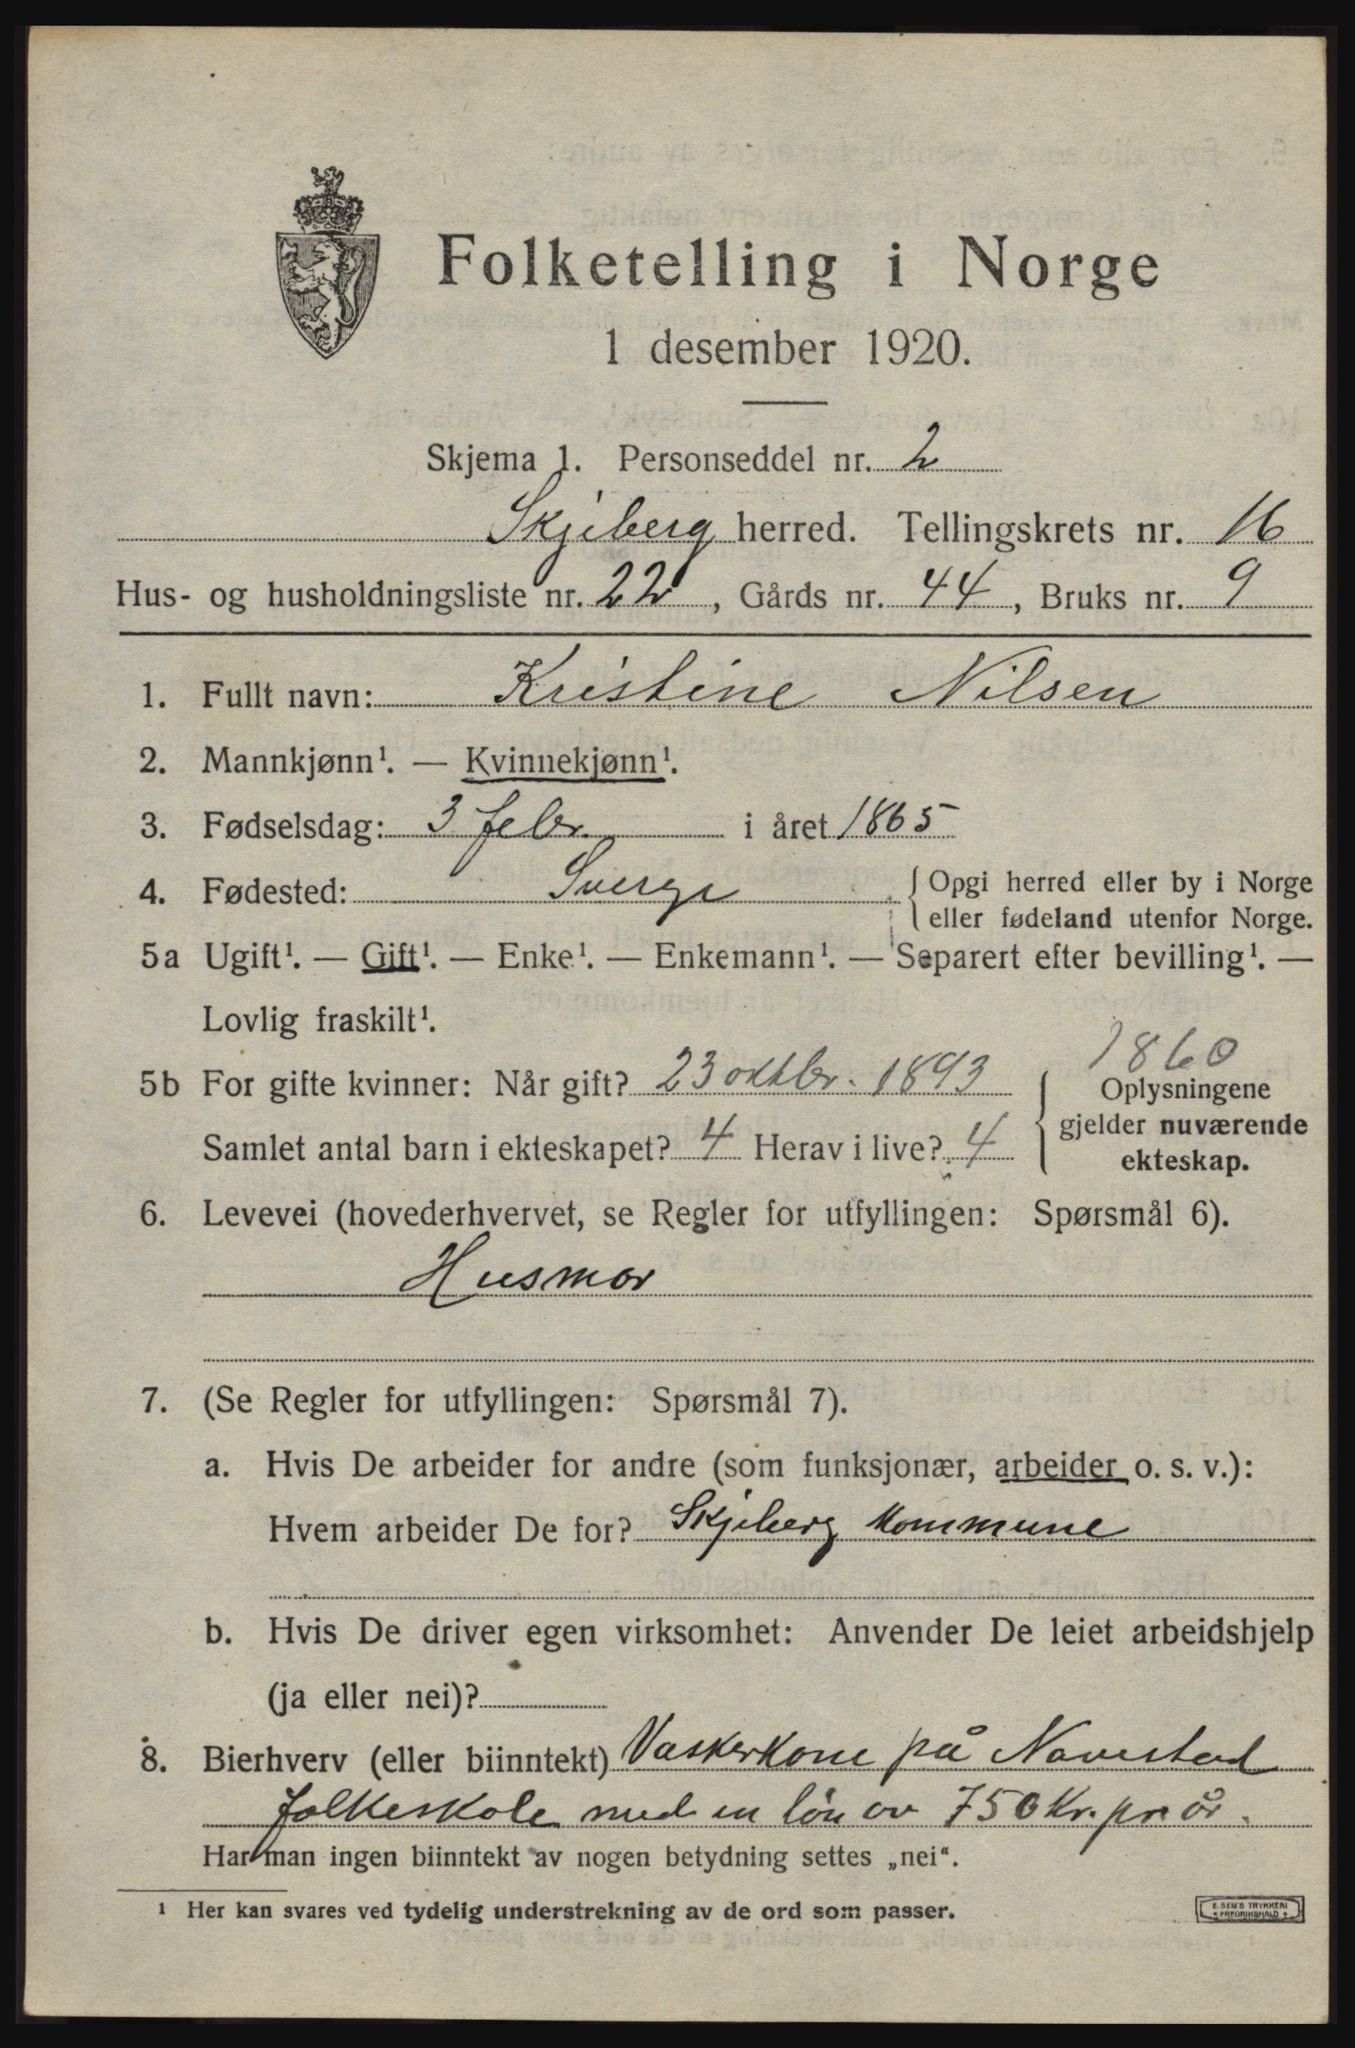 Folketelling i Norge
1 desember 1920.
Skjema 1. Personseddel nr. 2
Skjeberg herred. Tellingskrets nr. 16
Hus- og husholdningsliste nr. 22, Gårds nr. 44, Bruks nr. 9
1. Fullt navn: Kristine Nilsen
2. Mannkjønn¹. — Kvinnekjønn¹.
3. Fødselsdag: 3 febr. i året 1865
4. Fødested: Sverge { Opgi herred eller by i Norge
eller fødeland utenfor Norge.
5a Ugift¹. — Gift¹. — Enke¹. — Enkemann¹. — Separert efter bevilling¹. —
Lovlig fraskilt¹.
1860
5b For gifte kvinner: Når gift? 23 oktbr. 1893
Samlet antal barn i ekteskapet? 4 Herav i live? 4
{ Oplysningene
gjelder nuværende
ekteskap.
6. Levevei (hovederhvervet, se Regler for utfyllingen: Spørsmål 6).
Husmor
7. (Se Regler for utfyllingen: Spørsmål 7).
a. Hvis De arbeider for andre (som funksjonær, arbeider o. s. v.):
Hvem arbeider De for? Skjeberg kommune
b. Hvis De driver egen virksomhet: Anvender De leiet arbeidshjelp
(ja eller nei)?
8. Bierhverv (eller biinntekt) Vaskerkone på Navestad
folkeskole med en løn av 750 Kr. pr. år.
Har man ingen biinntekt av nogen betydning settes „nei“.
¹ Her kan svares ved tydelig understrekning av de ord som passer.
E. SEM'S TRYKKERI
FREDRIKSHALD